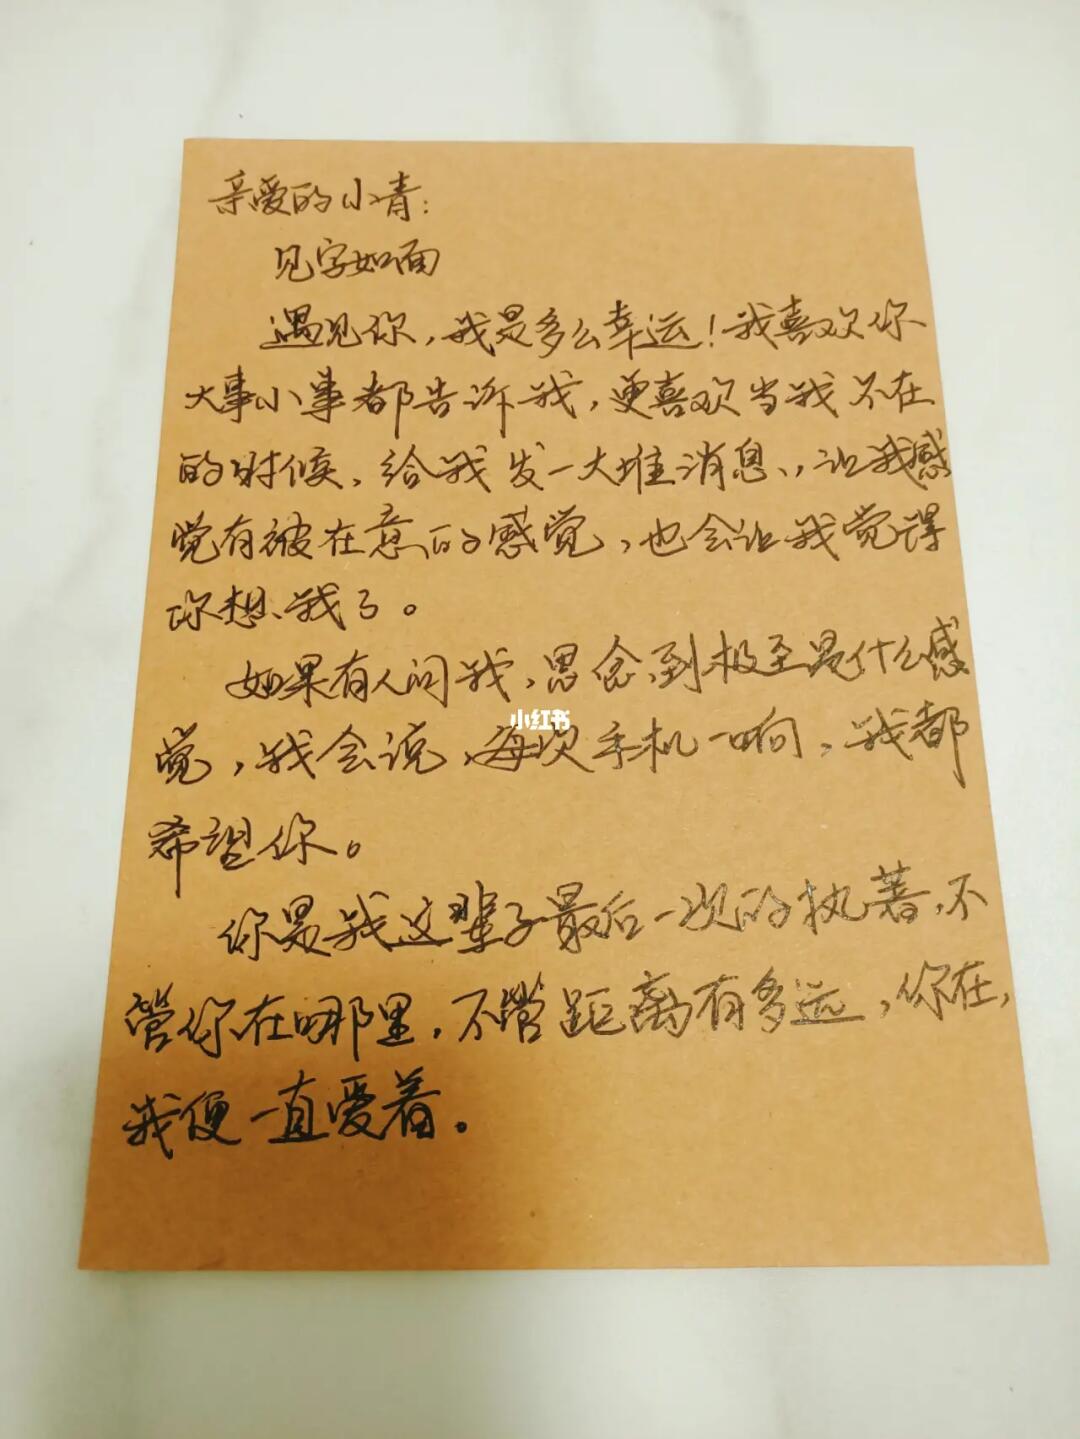 亲爱的小青：
见字如面
遇见你，我是多么幸运！我喜欢你
大事小事都告诉我，更喜欢当我不在
的时候，给我发一大堆消息，让我感
觉有被在意的感觉，也会让我觉得
你想我了。
如果有人问我，思念到极至是什么感
觉，我会说，每次手机一响，我都
希望你。
你是我这辈子最后一次的执著，不
管你在哪里，不管距离有多远，你在，
我便一直爱着。
小红书